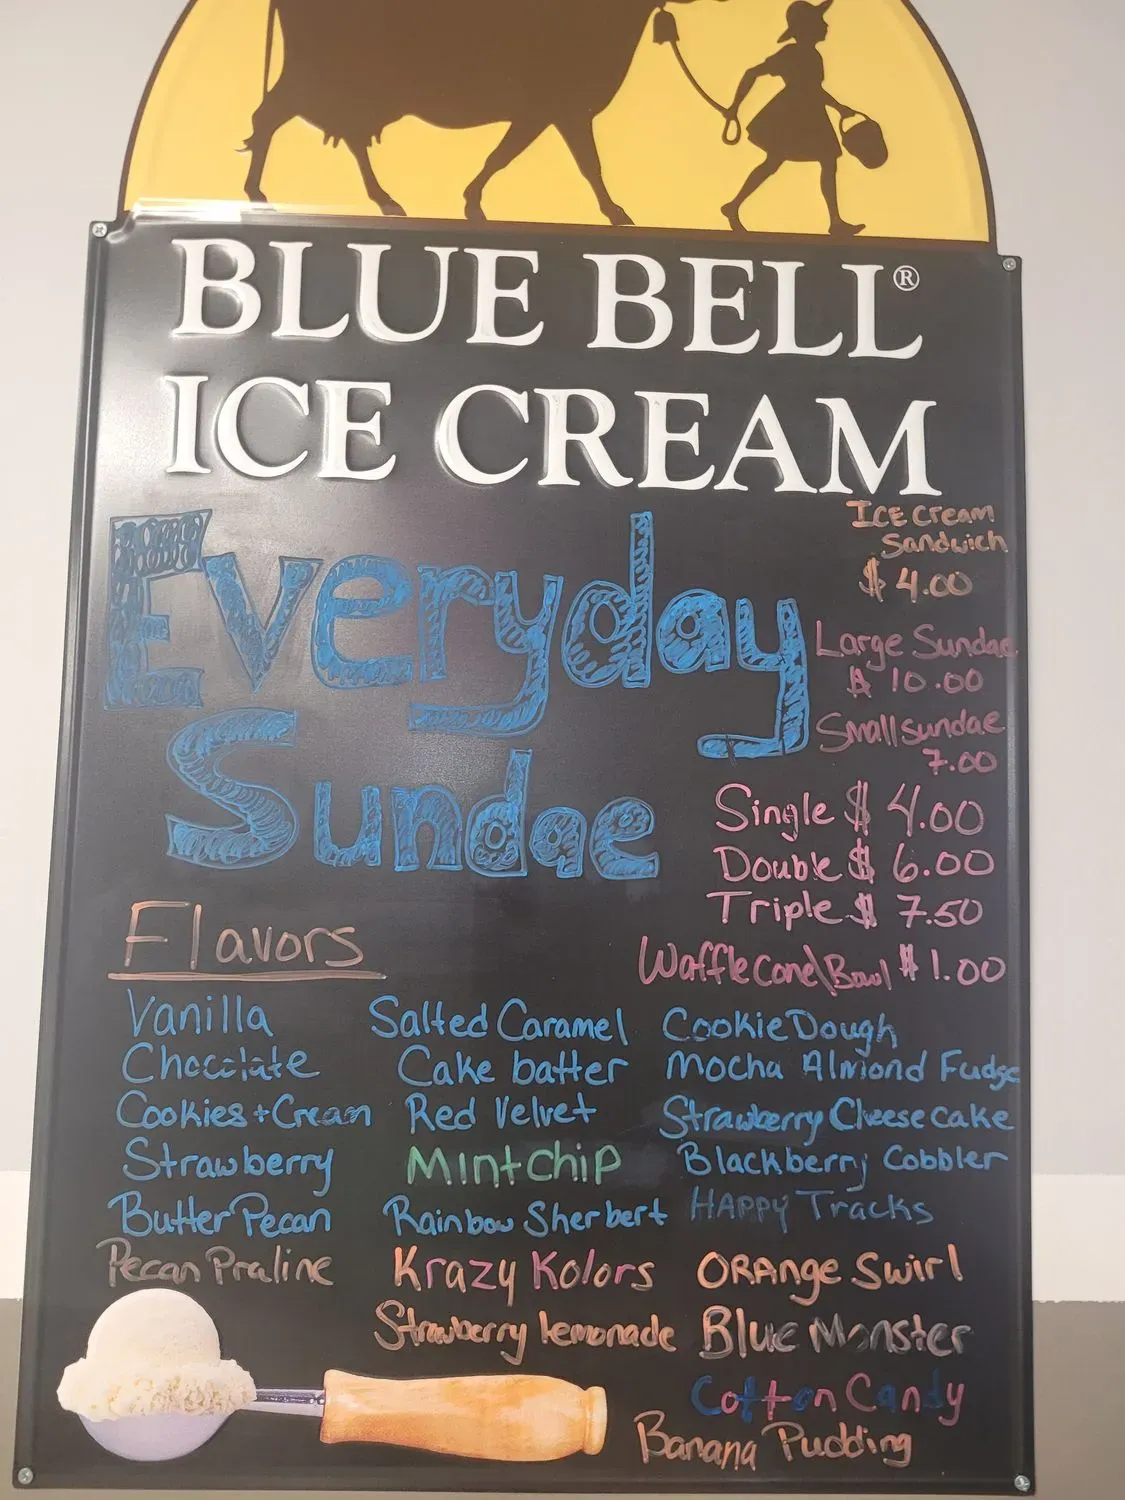 BLUE BELL®
ICE CREAM
Everyday
Sundae
ICE Cream
Sandwich
$ 4.00
Large Sundae
$ 10.00
Small sundae
7.00
Single $ 4.00
Double $ 6.00
Triple $ 7.50
Waffle Cone\Bowl $1.00
Flavors
Vanilla
Chocolate
Cookies + Cream
Strawberry
Butter Pecan
Pecan Praline
Salted Caramel
Cake batter
Red Velvet
Mint chip
Rainbow Sherbert
Krazy Kolors
Strawberry lemonade
Cookie Dough
Mocha Almond Fudge
Strawberry Cheesecake
Blackberry Cobbler
HAPPY Tracks
ORANge Swirl
Blue Monster
Cotton Candy
Banana Pudding